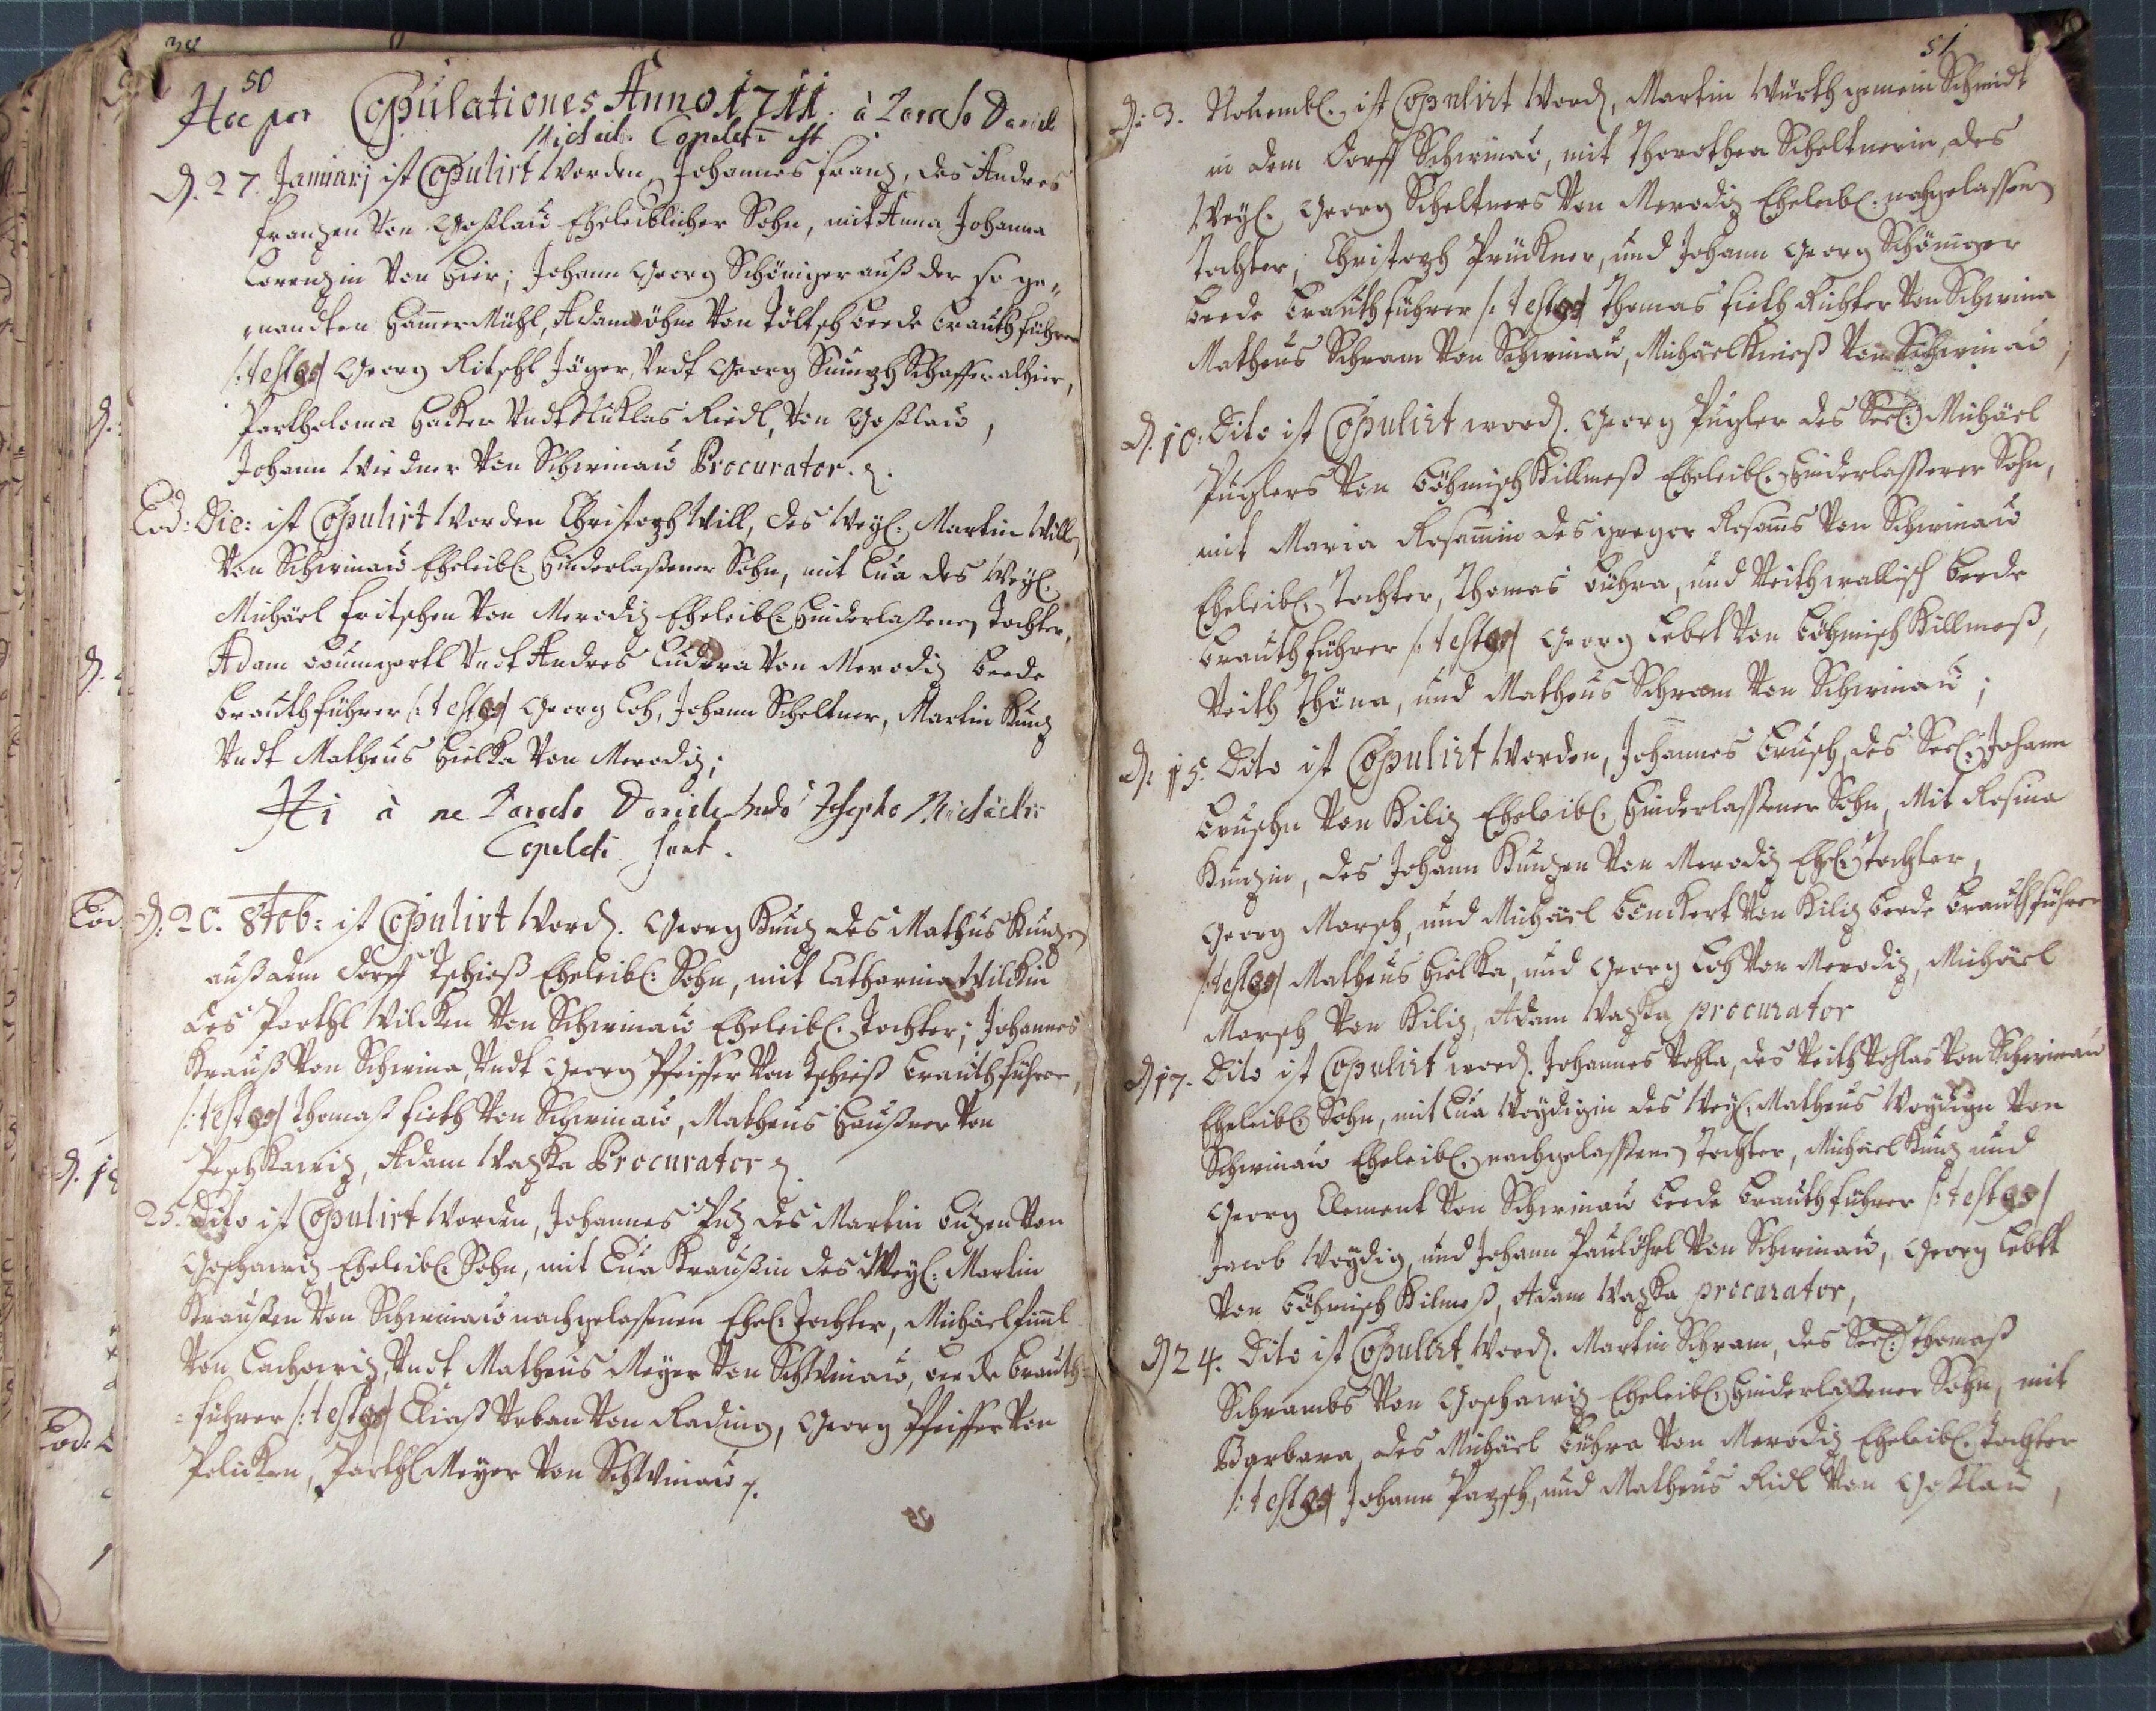 50
Hoc par Copulationes Anno 1711. à Parocho Daniele
Michael: Copulatū est
D. 27. Januarj ist Copulirt Worden, Johannes Franz, des Andres
Franzen Von Goßlau Eheleiblicher Sohn, mit Anna Johanna
Lorenzin Von hier; Johann Georg Schöniger auß der so ge„
„nandten Ham̄erMühl, Adam Böhm Von Töltsch beede brauthführer
/: testes/ Georg Ritschl Jäger, Undt Georg Schaffer alhier,
Partholoma Hacker Undt Niklas Riedl, Von Goßlau,
Johann Widner Von Schwinau Procurator.
Eod: Die: ist Copulirt Worden Christoph Will, des Weyl. Martin Willn
Von Schwinau Eheleibl: Hinderlaßener Sohn, mit Eua des Weyl.
Michäel Fritschen Von Merodiz Eheleibl: Hinderlaßenen Tochter,
Adam Baumgartl Undt Andres Von Merodiz beede
brauthführer /: testes/ Georg Loh, Johann Scheltner, Martin Kunz
Undt Matheus Hielka Von Merodiz;
Hi à me Parocho Daniele Josepho Michaele
Copulati sunt.
D: 20. 8tob: ist Copulirt Word. Georg Kunz des Mathus Kunzen
auß dem dorff Tschieß Eheleibl: Sohn, mit Catharina Wilckin
des Parthl Wilcken Von Schwinau Eheleibl. Tochter; Johannes
Krauß Von Schwina, Undt Georg Pfeiffer Von Tschieß brauthführer,
/: testes/ Thomaß Fieth Von Schwinau, Matheus Haußner Von
Peschkawiz, Adam Wazka Procurator
25. Dito ist Copulirt Worden, Johannes Puz des Martin buzen Von
Goschawiz Eheleibl. Sohn, mit Eua Kraußin des Weyl: Martin
Kraußen Von Schwinau nachgelassenen Ehel: Tochter, Michael
Von Lachowiz, Undt Matheus Meyer Von Schwinau, beede brauth=
=führer /: testes/ Eliaß Urban Von Rading, Georg Pfeiffer Von
Policken, Parthl Meyer Von Schwinau
51
D: 3. Nouembl. ist Copulirt Word, Martin Würth gemein Schmidt
in dem Dorff Schwinau, mit Thorothea Scheltnerin, des
Weyl. Georg Scheltners Von Merodiz Eheleibl. nachgelassen
Tochter, Christoph Prückner, und Johann Georg Schöniger
beede brauthführer /: testes/ Thomas Fieth Richter Von Schwina
Matheus Schram Von Schwinau, Michäel Krieß Von Schwinau,
D. 10: Dito ist Copulirt word. Georg Pugler des Seel: Michäel
Puglers Von böhmisch Killmeß Eheleibl. Hinderlassener Sohn,
mit Maria Rosam̄in des gregor Rosam̄s Von Schwinau
Eheleibl. Tochter, Thomas bühra, und Veith wallisch beede
brauthführer /: testes/ Georg Lebet Von böhmisch Killmeß,
Veith Thöna, und Matheus Schram Von Schwinau;
D: 15. Dito ist Copulirt Worden, Johannes brusch, des Seel: Johann
bruschn Von Kiliz Eheleibl. Hinderlassener Sohn, Mit Rosina
Kunzin, des Johann Kunzen Von Merodiz Ehel. Tochter,
Georg Marsch, und Michäel Von Kiliz beede brauthführer
/: testes/ Matheus Hielka, und Georg Loh Von Merodiz, Michäel
Marsch Von Kiliz, Adam Wazka procurator
D 17. Dito ist Copulirt word. Johannes Vohla, des Veith Vohlas Von Schwinau
Eheleibl. Sohn, mit Eua Woydigin des Weyl. Matheus Woydign Von
Schwinau Eheleibl. nachgelassenen Tochter, Michael Kunz und
Georg Clement Von Schwinau beede brauthführer /: testes/
Jacob Woydig, und Johann Von Schwinau, Georg Lebet
Von böhmisch Kilmeß, Adam Wazka procurator,
D 24. Dito ist Copulirt Word. Martin Schram, des Seel: Thomaß
Schrambs Von Goschawiz Eheleibl. Hinderlaßener Sohn, mit
Barbara, des Michäel bühra Von Merodiz Eheleibl. Tochter
/: testes/ Johann Pazsch, und Matheus Ridl Von Goßlau,